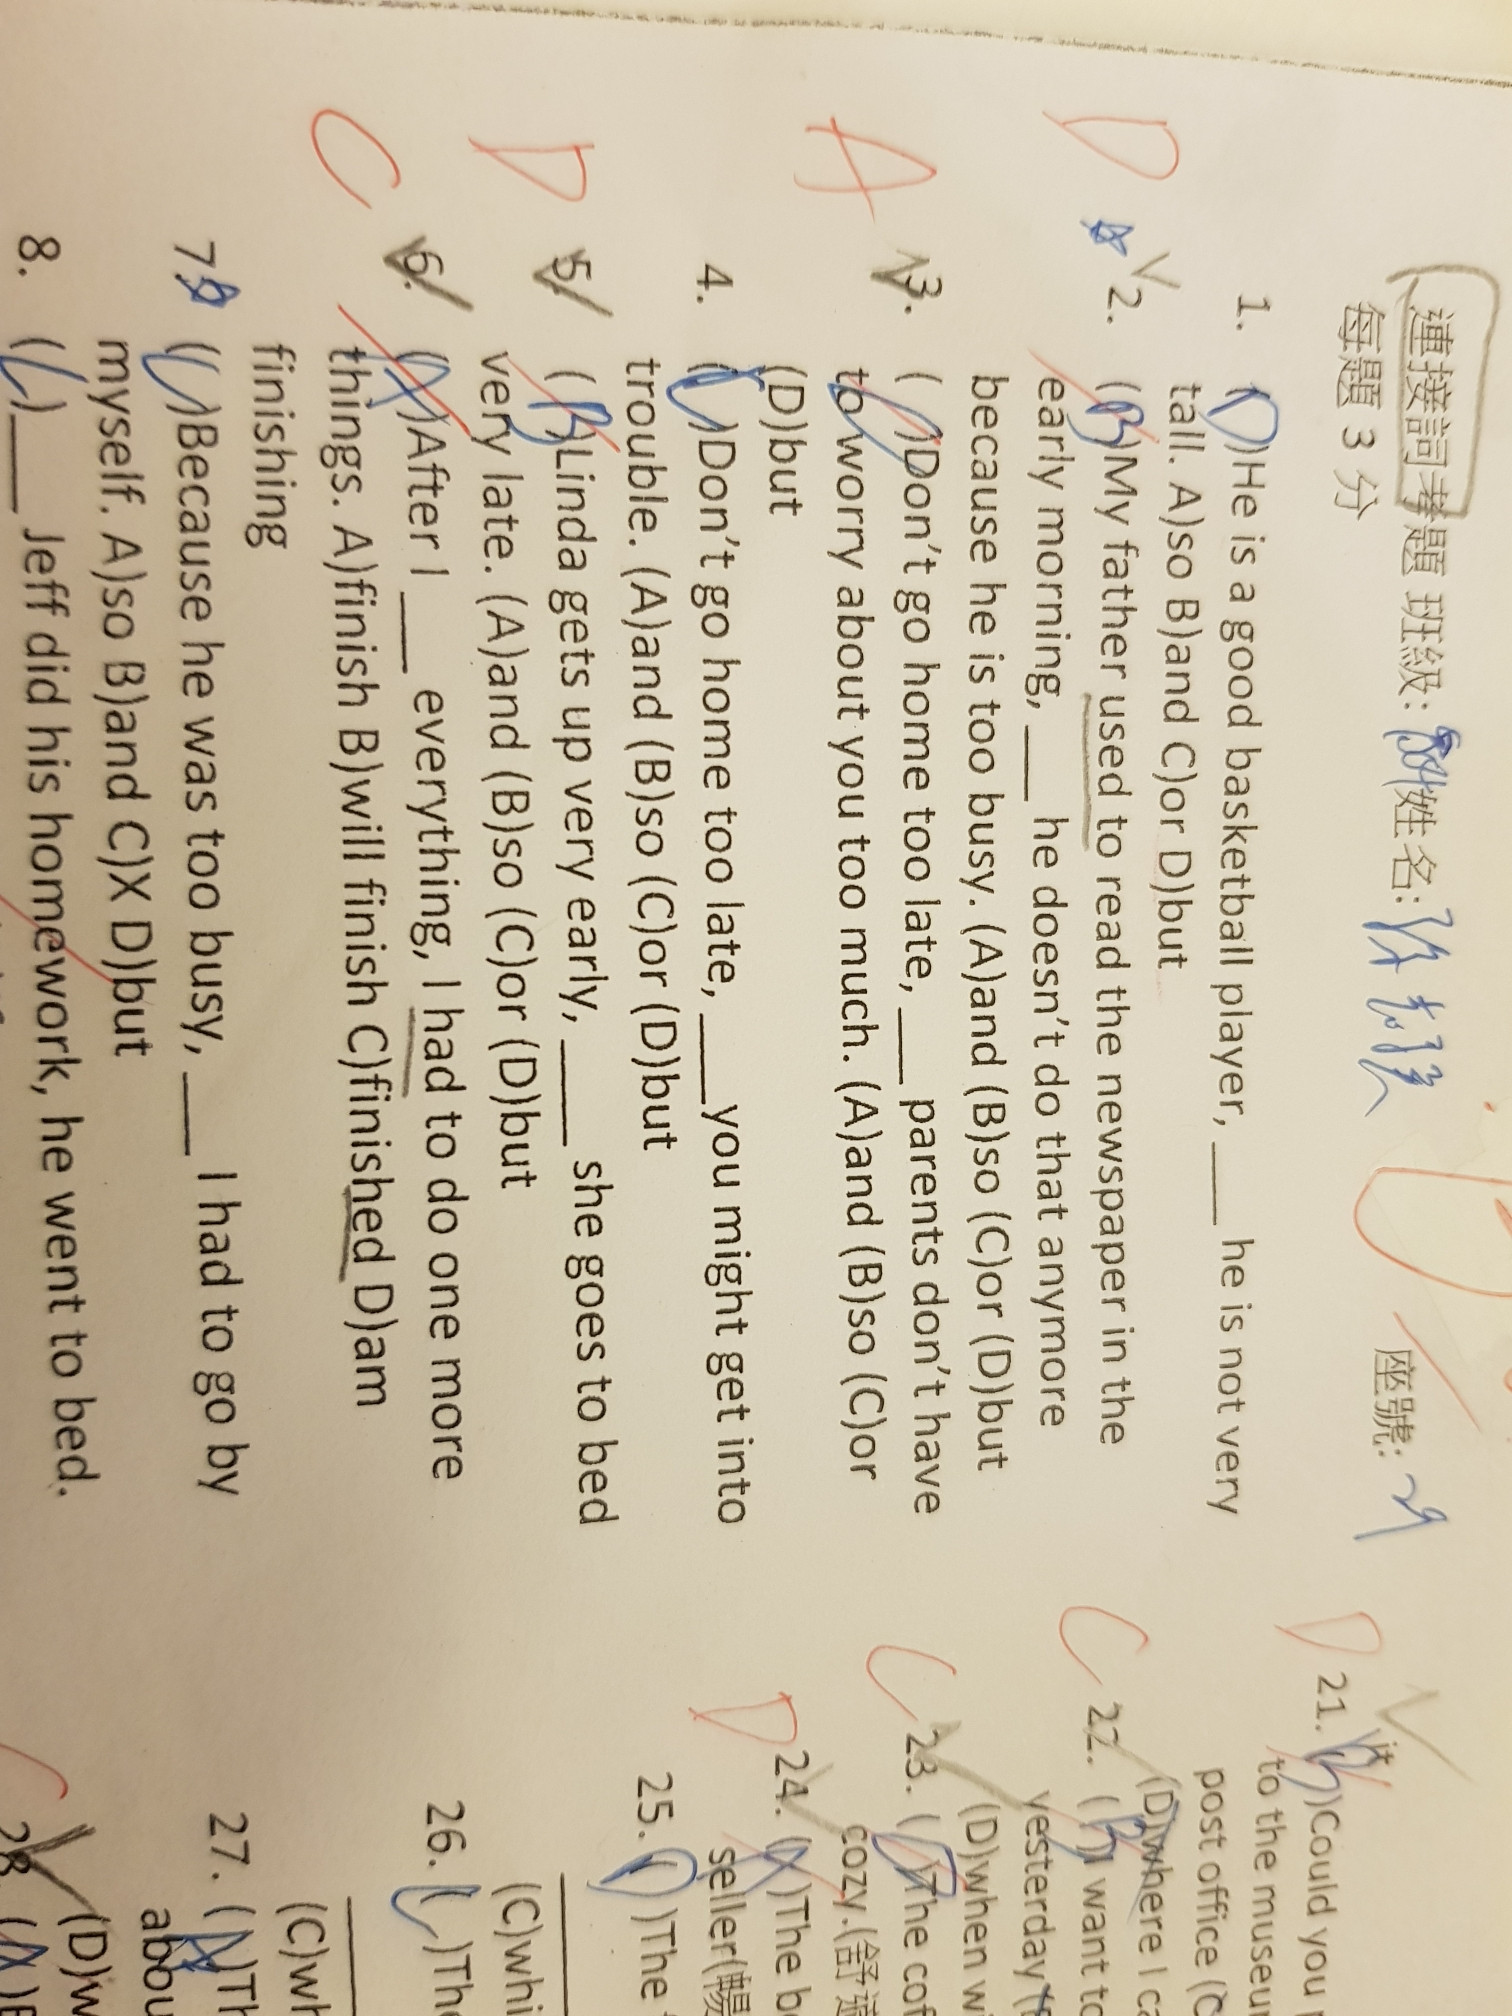 連接詞考題 班級: 姓名: 座號: 29
每題 3 分
1. (D)He is a good basketball player, ____ he is not very
tall. A)so B)and C)or D)but
D 2. (B)My father used to read the newspaper in the
early morning, ____ he doesn't do that anymore
because he is too busy. (A)and (B)so (C)or (D)but
A 3. ( )Don't go home too late, ____ parents don't have
to worry about you too much. (A)and (B)so (C)or
(D)but
4. (C)Don't go home too late, ____you might get into
trouble. (A)and (B)so (C)or (D)but
D 5. (B)Linda gets up very early, ____ she goes to bed
very late. (A)and (B)so (C)or (D)but
C 6. (A)After I ____ everything, I had to do one more
things. A)finish B)will finish C)finished D)am
finishing
7. (C)Because he was too busy, ____ I had to go by
myself. A)so B)and C)X D)but
8. (C)____ Jeff did his homework, he went to bed.
D 21. (B)Could you
to the museu
post office (C
(D)where I ca
C 22. (B)I want to
yesterday
(D)when wi
C 23. ( )The cof
cozy.(舒適
D 24. (A)The b
seller(暢
25. (D)The
(C)whi
26. (C)The
(C)wh
27. (A)Th
abou
(D)w
C 28. (A)